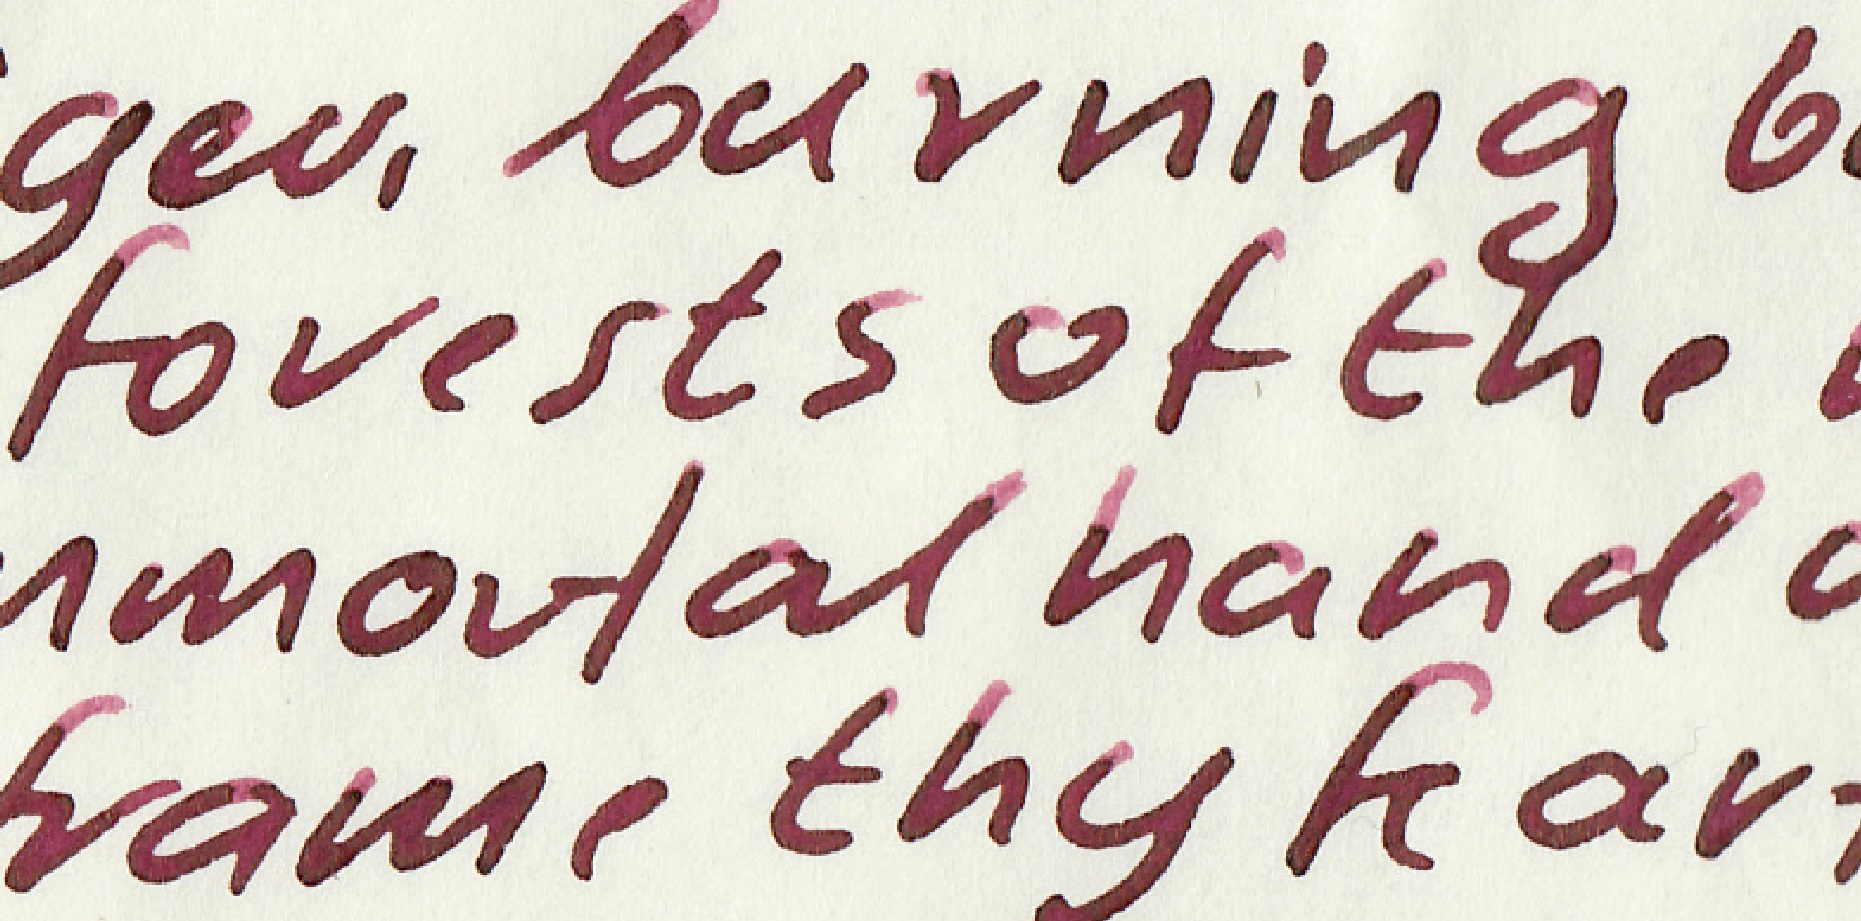 iger, burning b
forests of the
mmortal hand o
frame thy fear